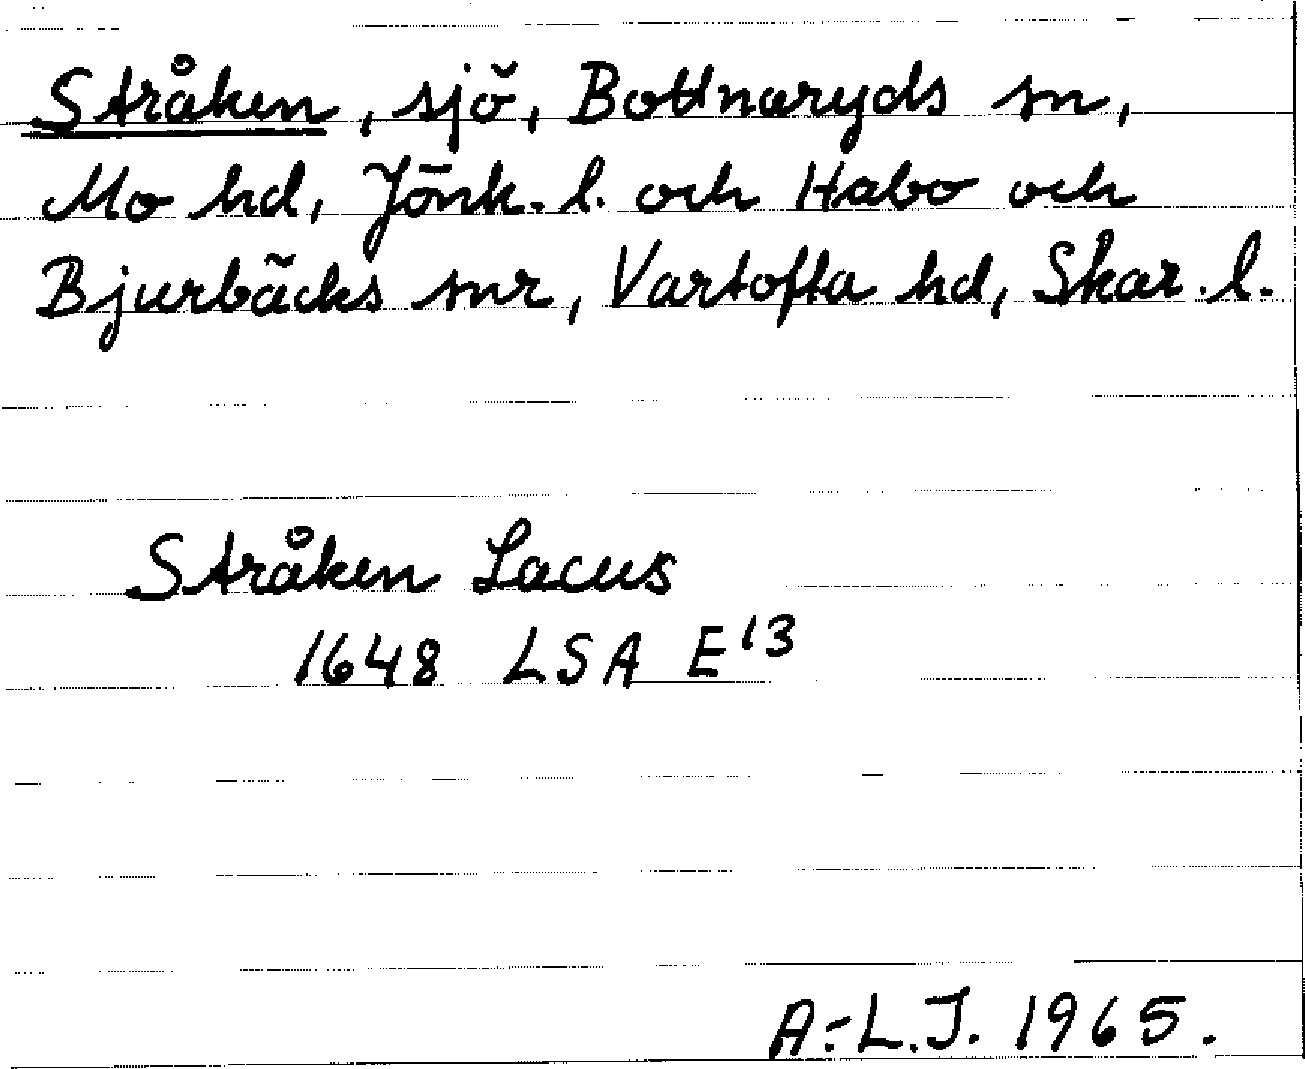 Stråken, sjö, Bottnaryds sn,
Mo hd, Jönk. l. och Habo och
Bjurbäcks snr, Vartofta hd, Skar. l.
Stråken Lacus
1648 LSA E13
A.-L.J. 1965.